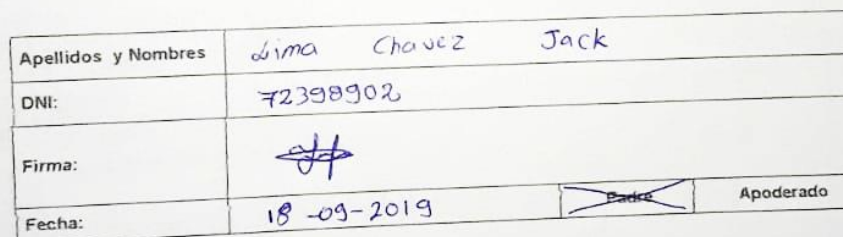 Apellidos y Nombres Lima Chavez Jack
DNI: 72398902
Firma:
Fecha: 18-09-2019 Padre Apoderado